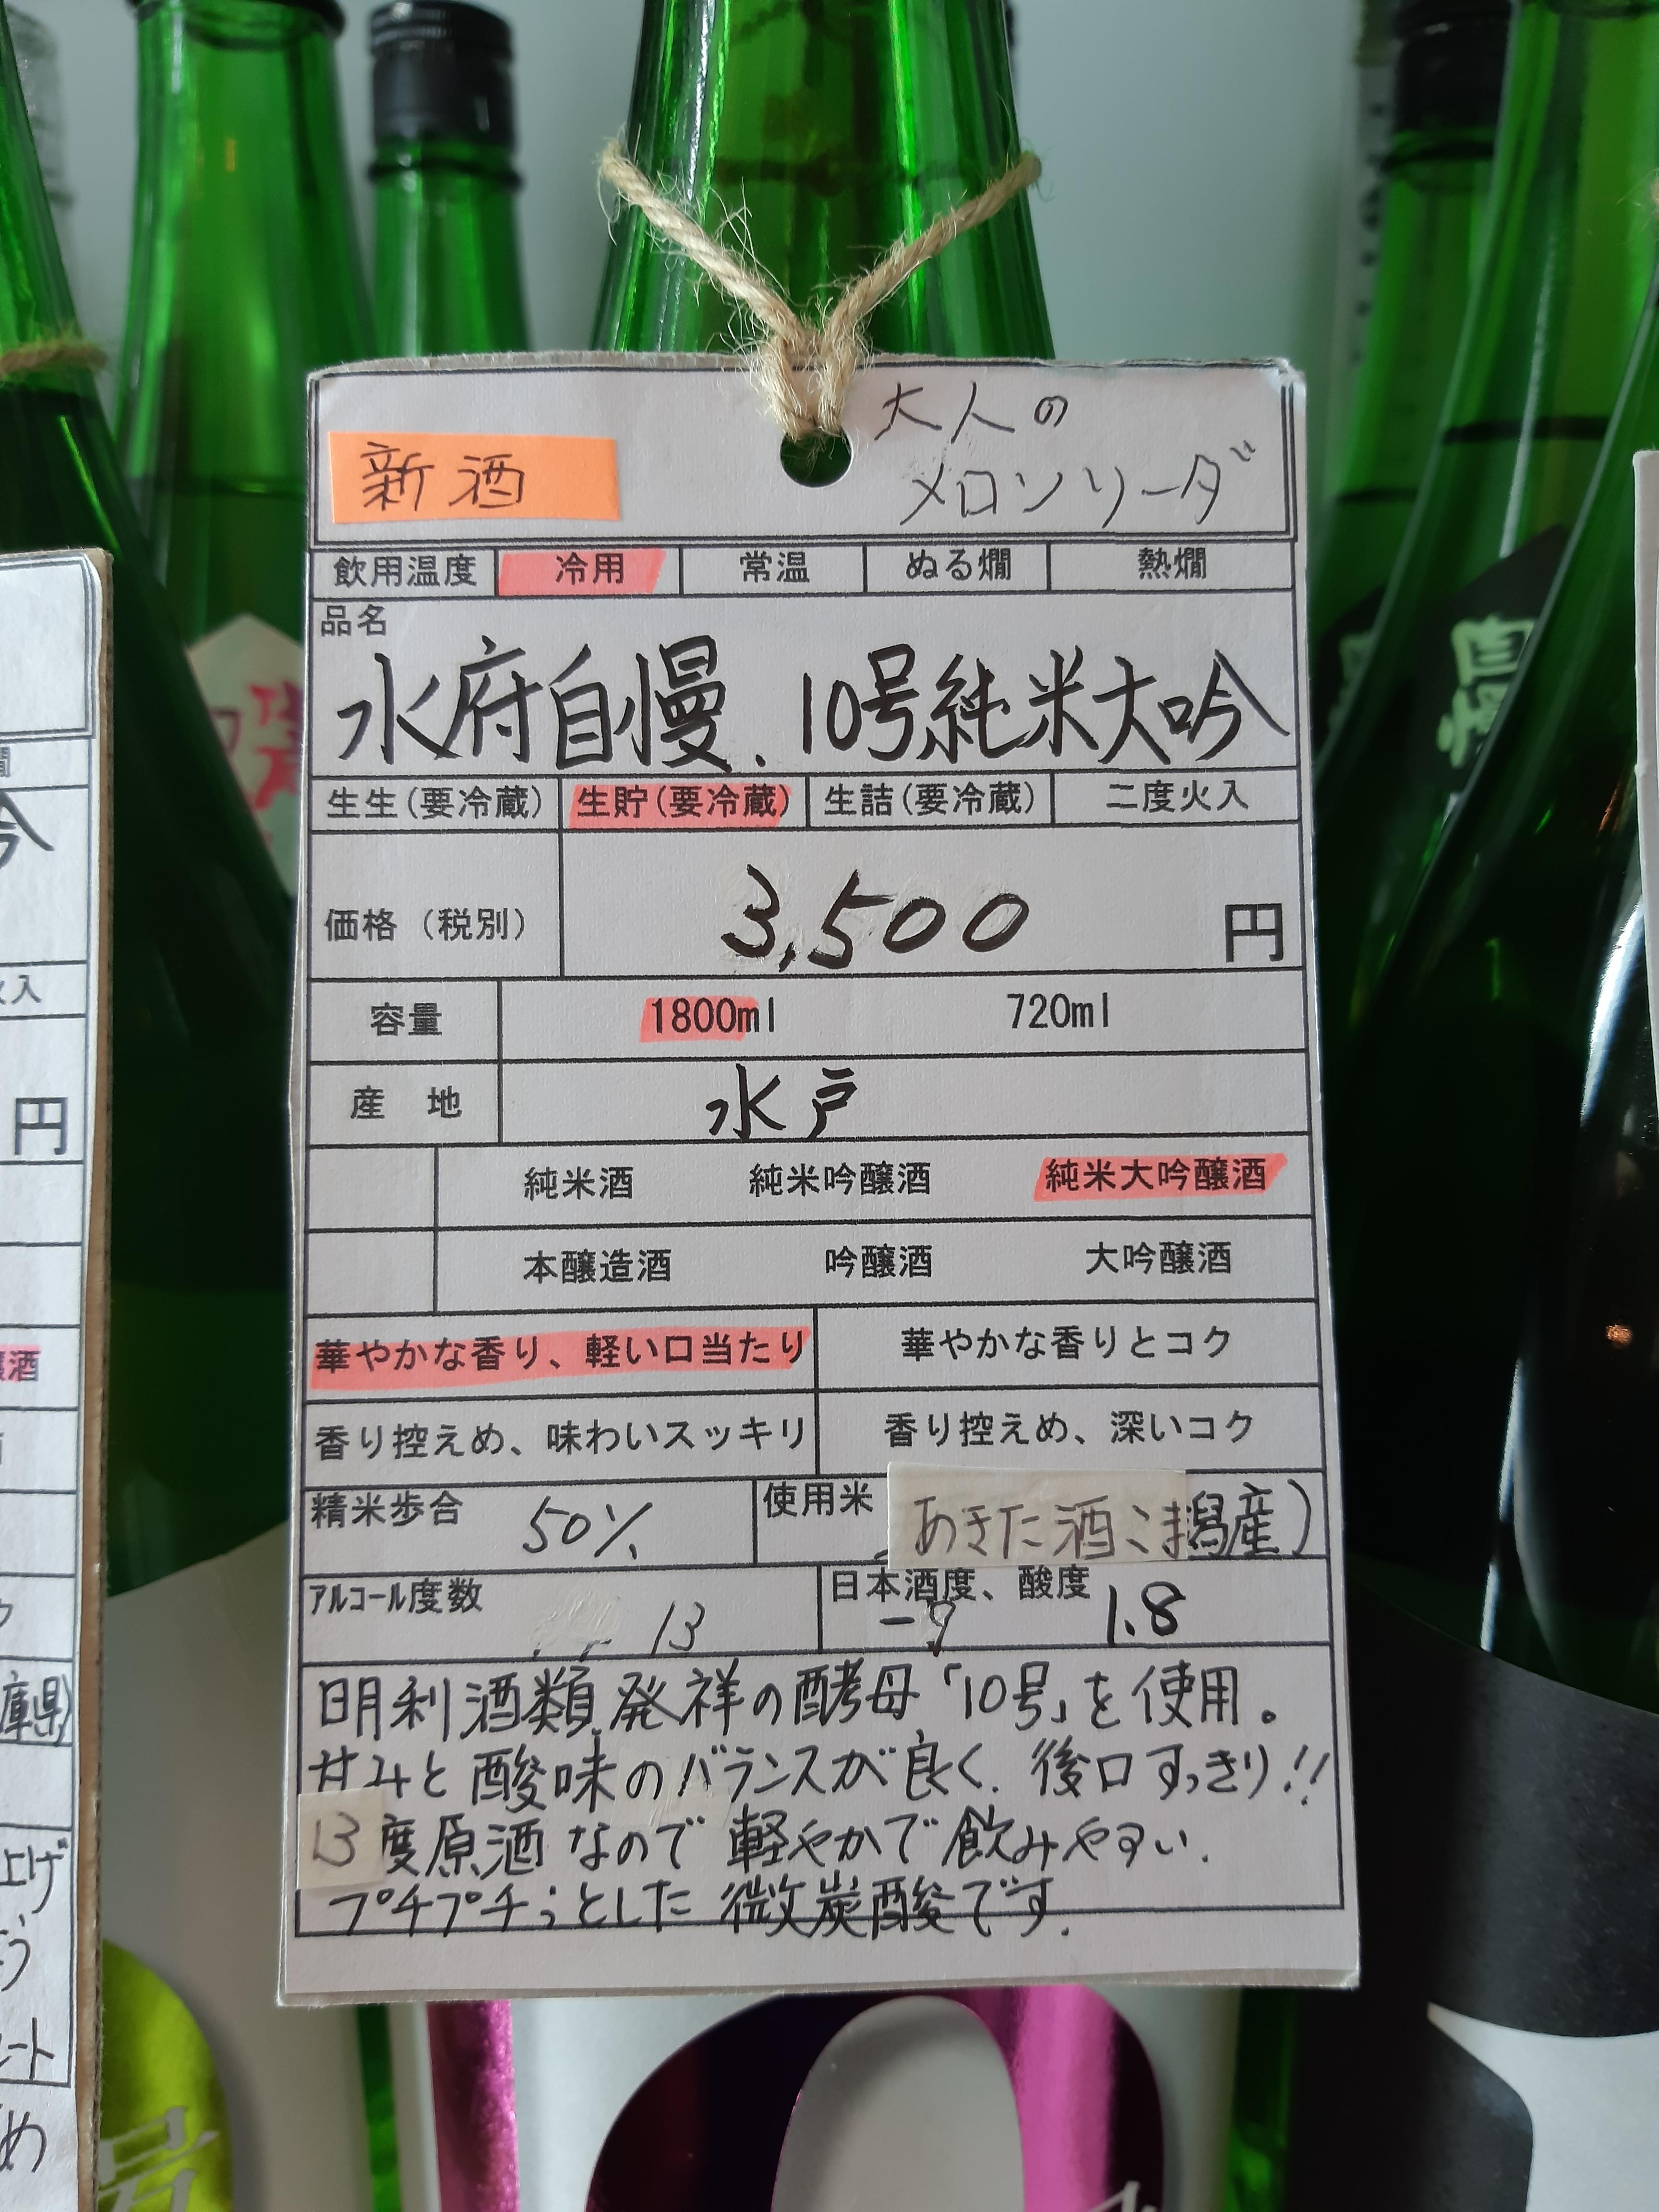 新酒
大人の
メロンソーダ
飲用温度 冷用 常温 ぬる燗 熱燗
品名
水府自慢.10号純米大吟
生生(要冷蔵) 生貯(要冷蔵) 生詰(要冷蔵) 二度火入
価格（税別） 3,500 円
容量 1800ml 720ml
産 地 水戸
純米酒 純米吟醸酒 純米大吟醸酒
本醸造酒 吟醸酒 大吟醸酒
華やかな香り、軽い口当たり 華やかな香りとコク
香り控えめ、味わいスッキリ 香り控えめ、深いコク
精米歩合 50% 使用米 あきた酒こま潟産)
アルコール度数 13 日本酒度、酸度 -9 1.8
明利酒類発祥の酵母「10号」を使用。
甘みと酸味のバランスが良く.後口すっきり!!
13度原酒なので軽やかで飲みやすい.
プチプチっとした微炭酸です.
円
庫県)
上げ
め
号